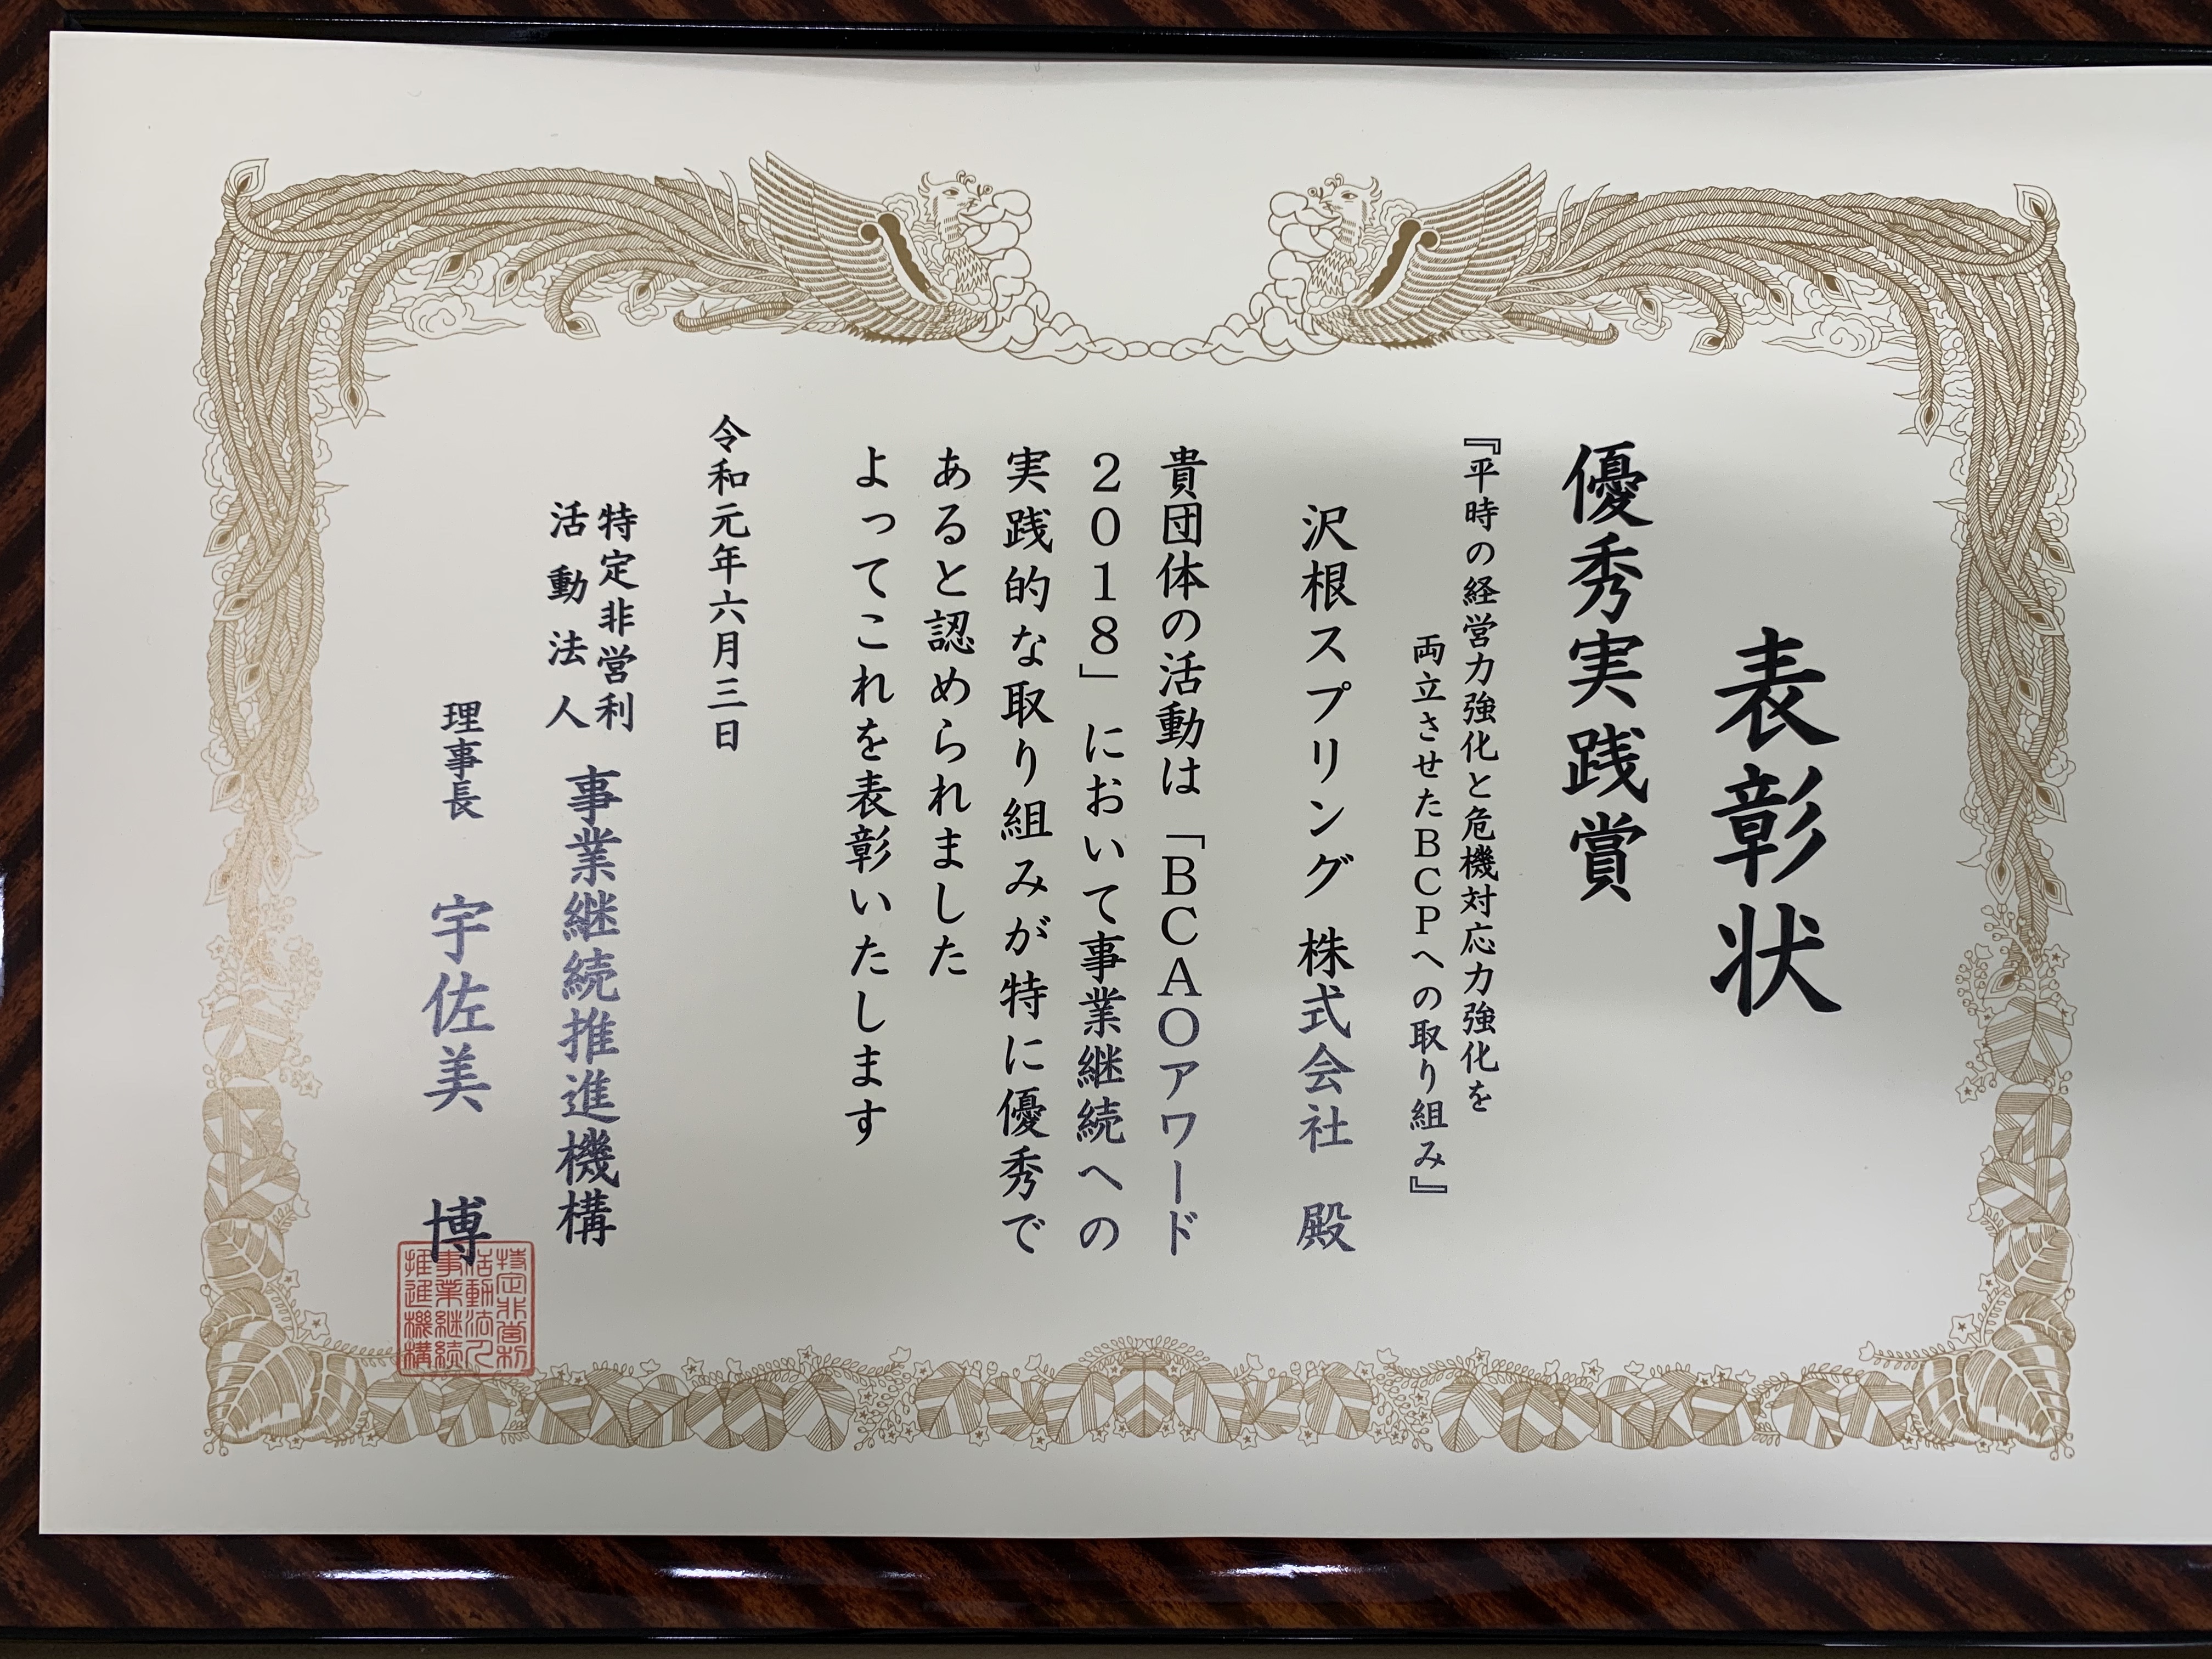 表彰状
優秀実践賞
『平時の経営力強化と危機対応力強化を
両立させたBCPへの取り組み』
沢根スプリング 株式会社 殿
貴団体の活動は「BCAOアワード
2018」において事業継続への
実践的な取り組みが特に優秀で
あると認められました
よってこれを表彰いたします
令和元年六月三日
特定非営利
活動法人
事業継続推進機構
理事長 宇佐美 博
特定非営利
活動法人
事業継続
推進機構